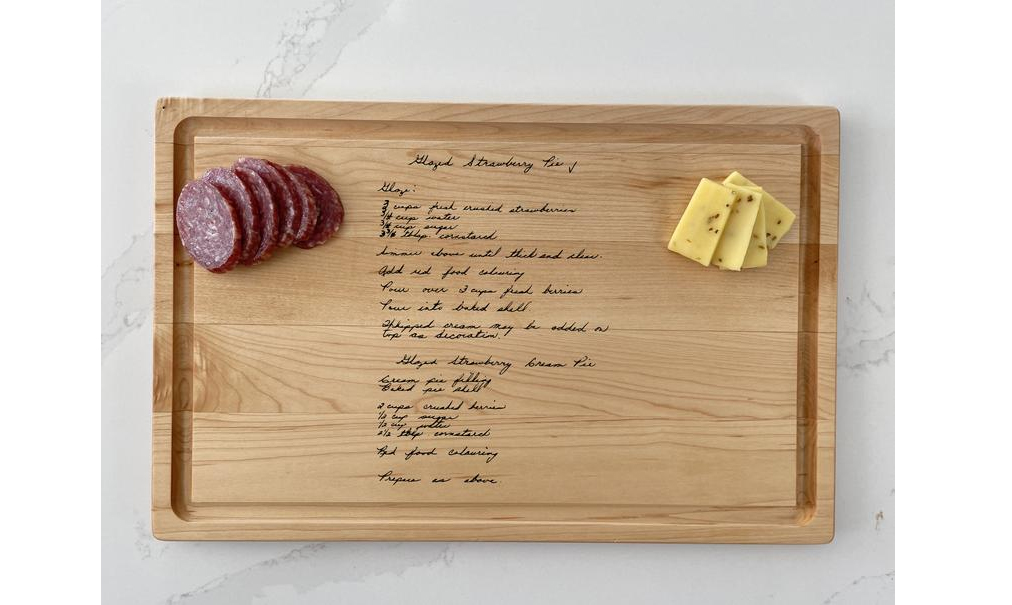 Glazed Strawberry Pie
Glaze:
3 cups fresh crushed strawberries
3/4 cup water
3/4 cup sugar
3 1/2 tblsp. cornstarch
Simmer above until thick and clear.
Add red food colouring
Pour over 3 cups fresh berries
Pour into baked shell.
Whipped cream may be added on
top as decoration.
Glazed Strawberry Cream Pie
Cream pie filling
Baked pie shell
2 cups crushed berries
1/2 cup sugar
1/2 cup water
2 1/2 tblsp cornstarch
Red food colouring
Prepare as above.